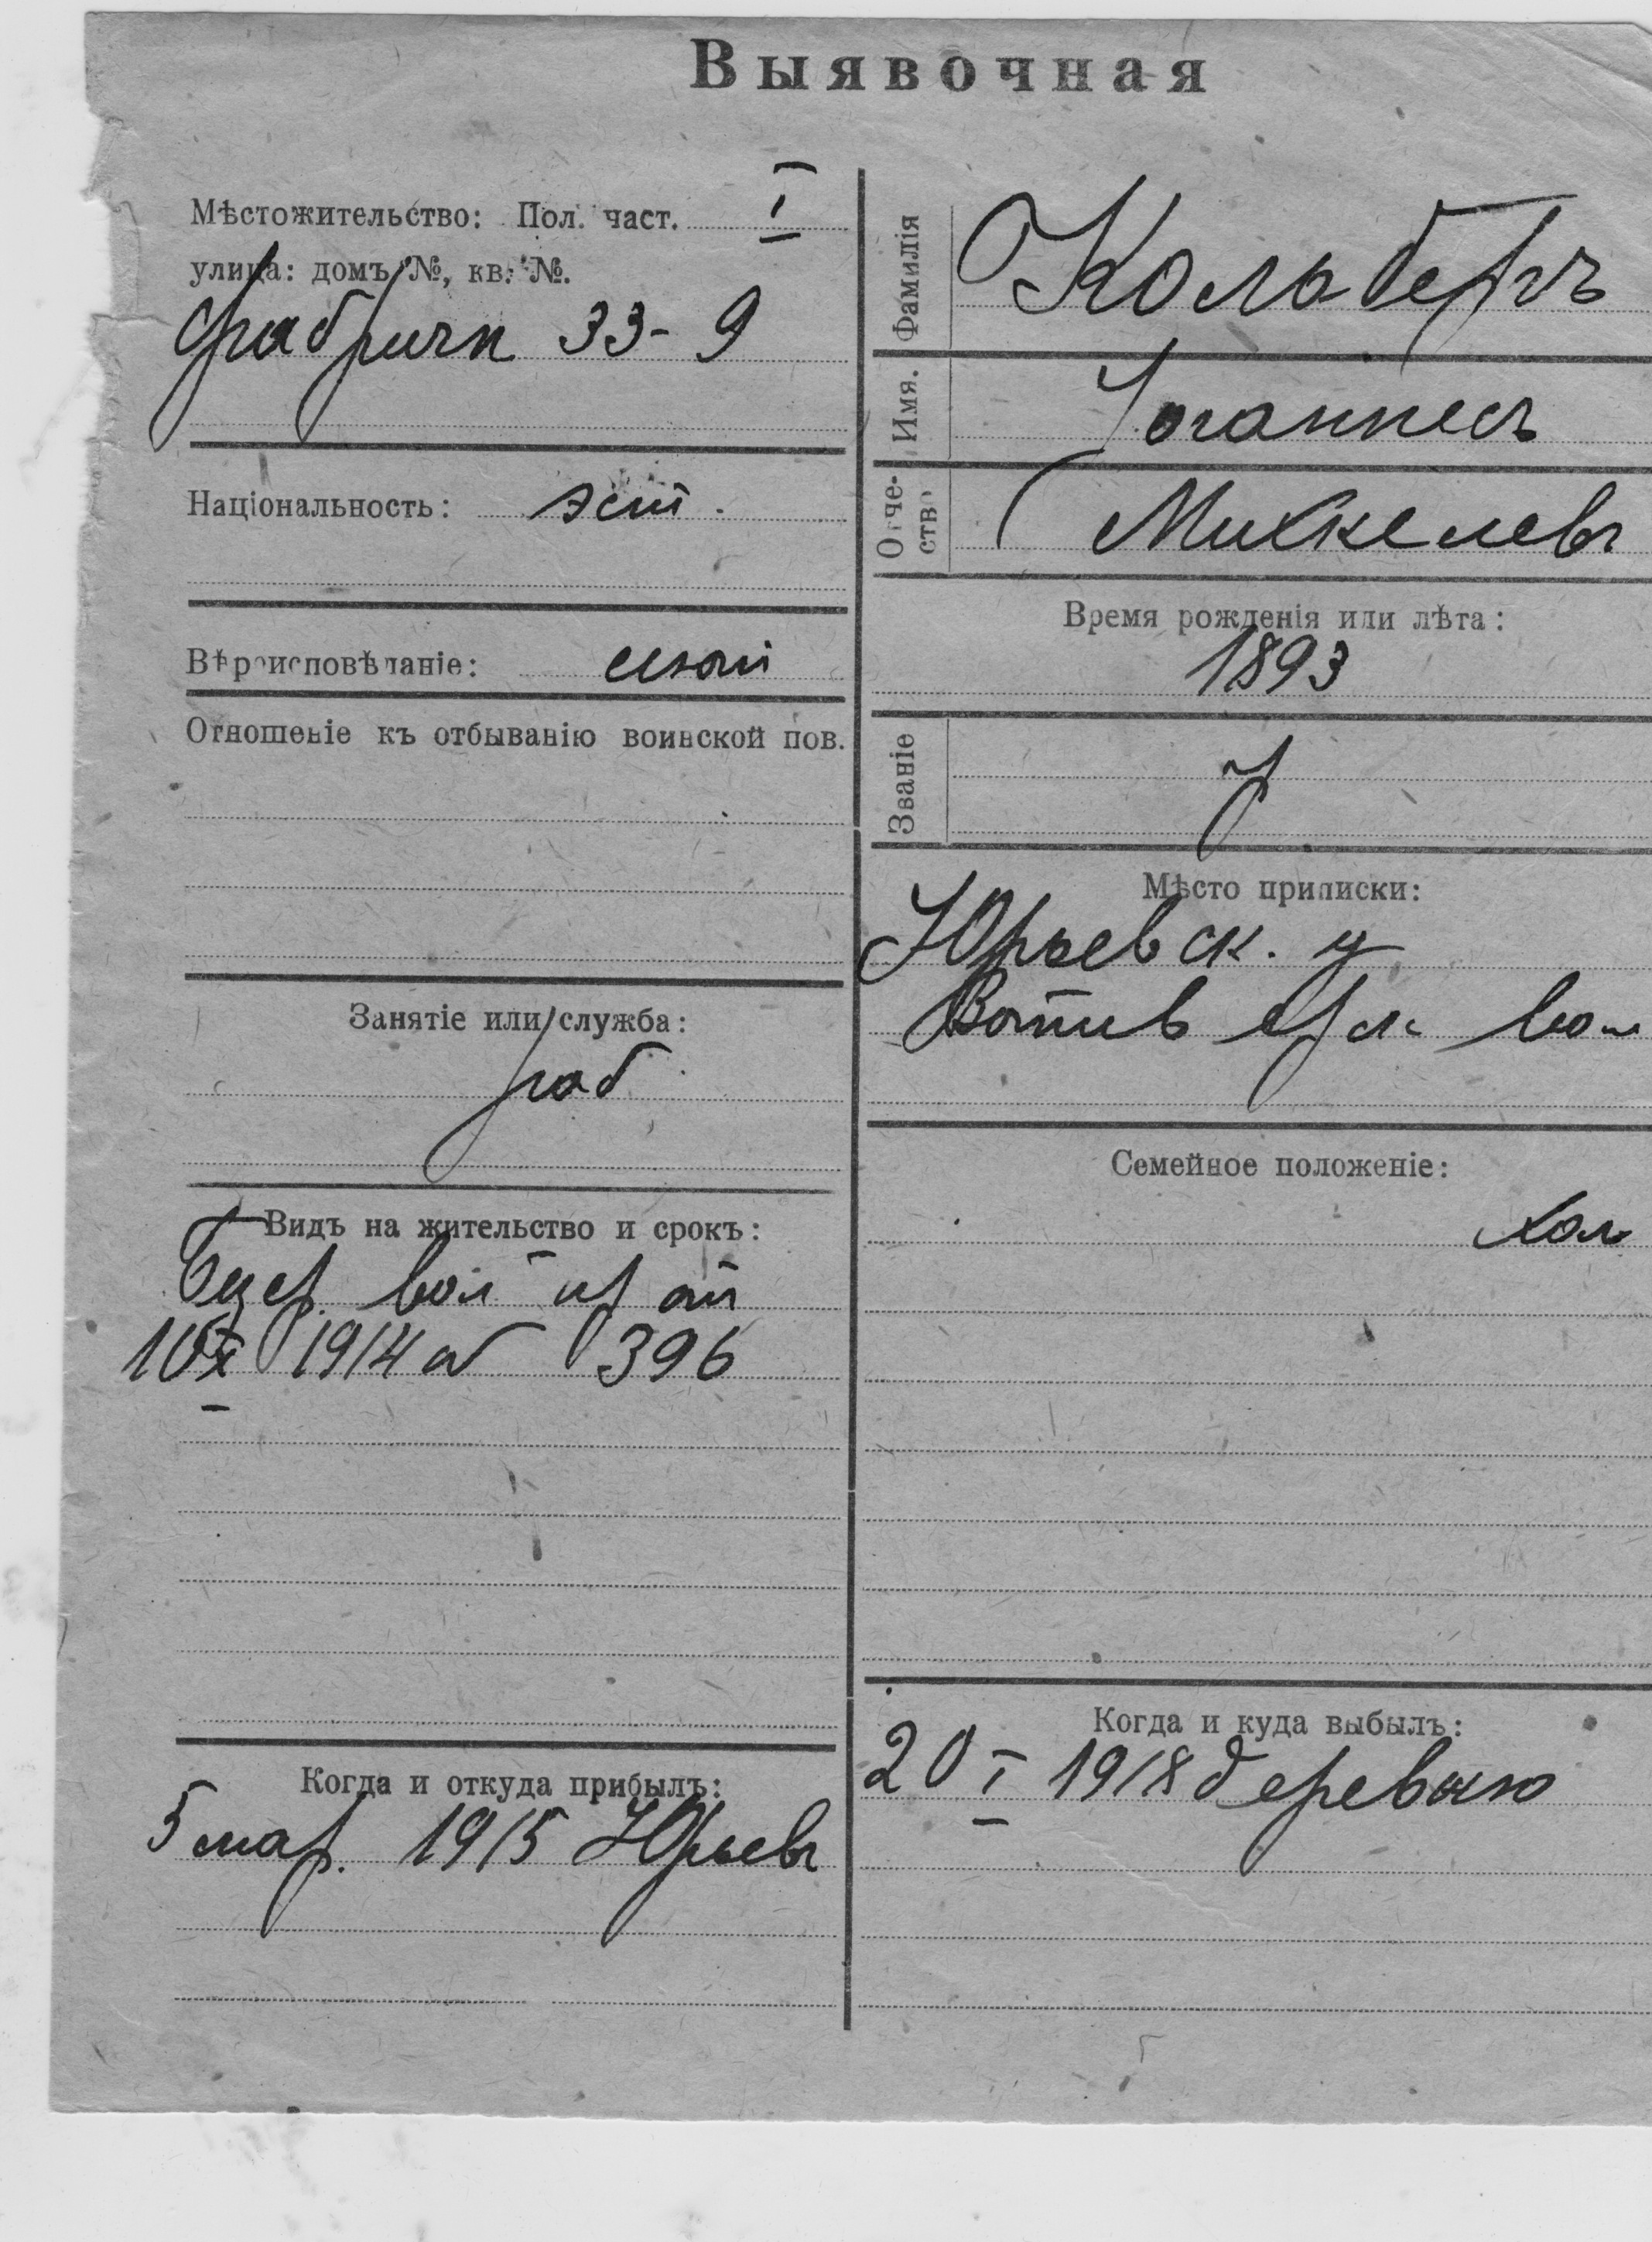 Выявочная
Мѣстожительство: Пол. част. I
улица: домъ №, кв. №.
Фабричн 33-9
Національность: эст.
Вѣроисповѣданіе: лют
Отношеніе къ отбыванію воинской пов.
Занятіе или служба:
раб
Видъ на жительство и срокъ:
вол пр от
10 X 1914 № 396
Когда и откуда прибылъ:
5 мар. 1915 Юрьевъ
Фамилія Кольбергъ
Имя. Иоганнесъ
Отчество Михкелевъ
Время рожденія или лѣта:
1893
Званіе
Мѣсто приписки:
Юрьевск. у
вол
Семейное положеніе:
хол
Когда и куда выбылъ:
20 I 1918 деревню